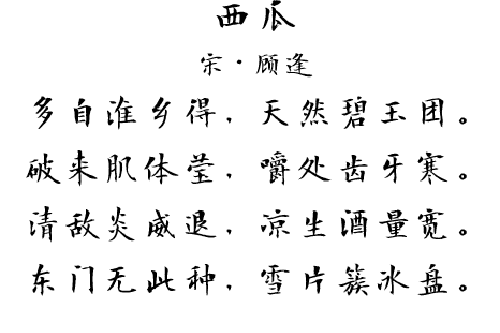 西瓜
宋·顾逢
多自淮乡得，天然碧玉团。
破来肌体莹，嚼处齿牙寒。
清敌炎威退，凉生酒量宽。
东门无此种，雪片簇冰盘。